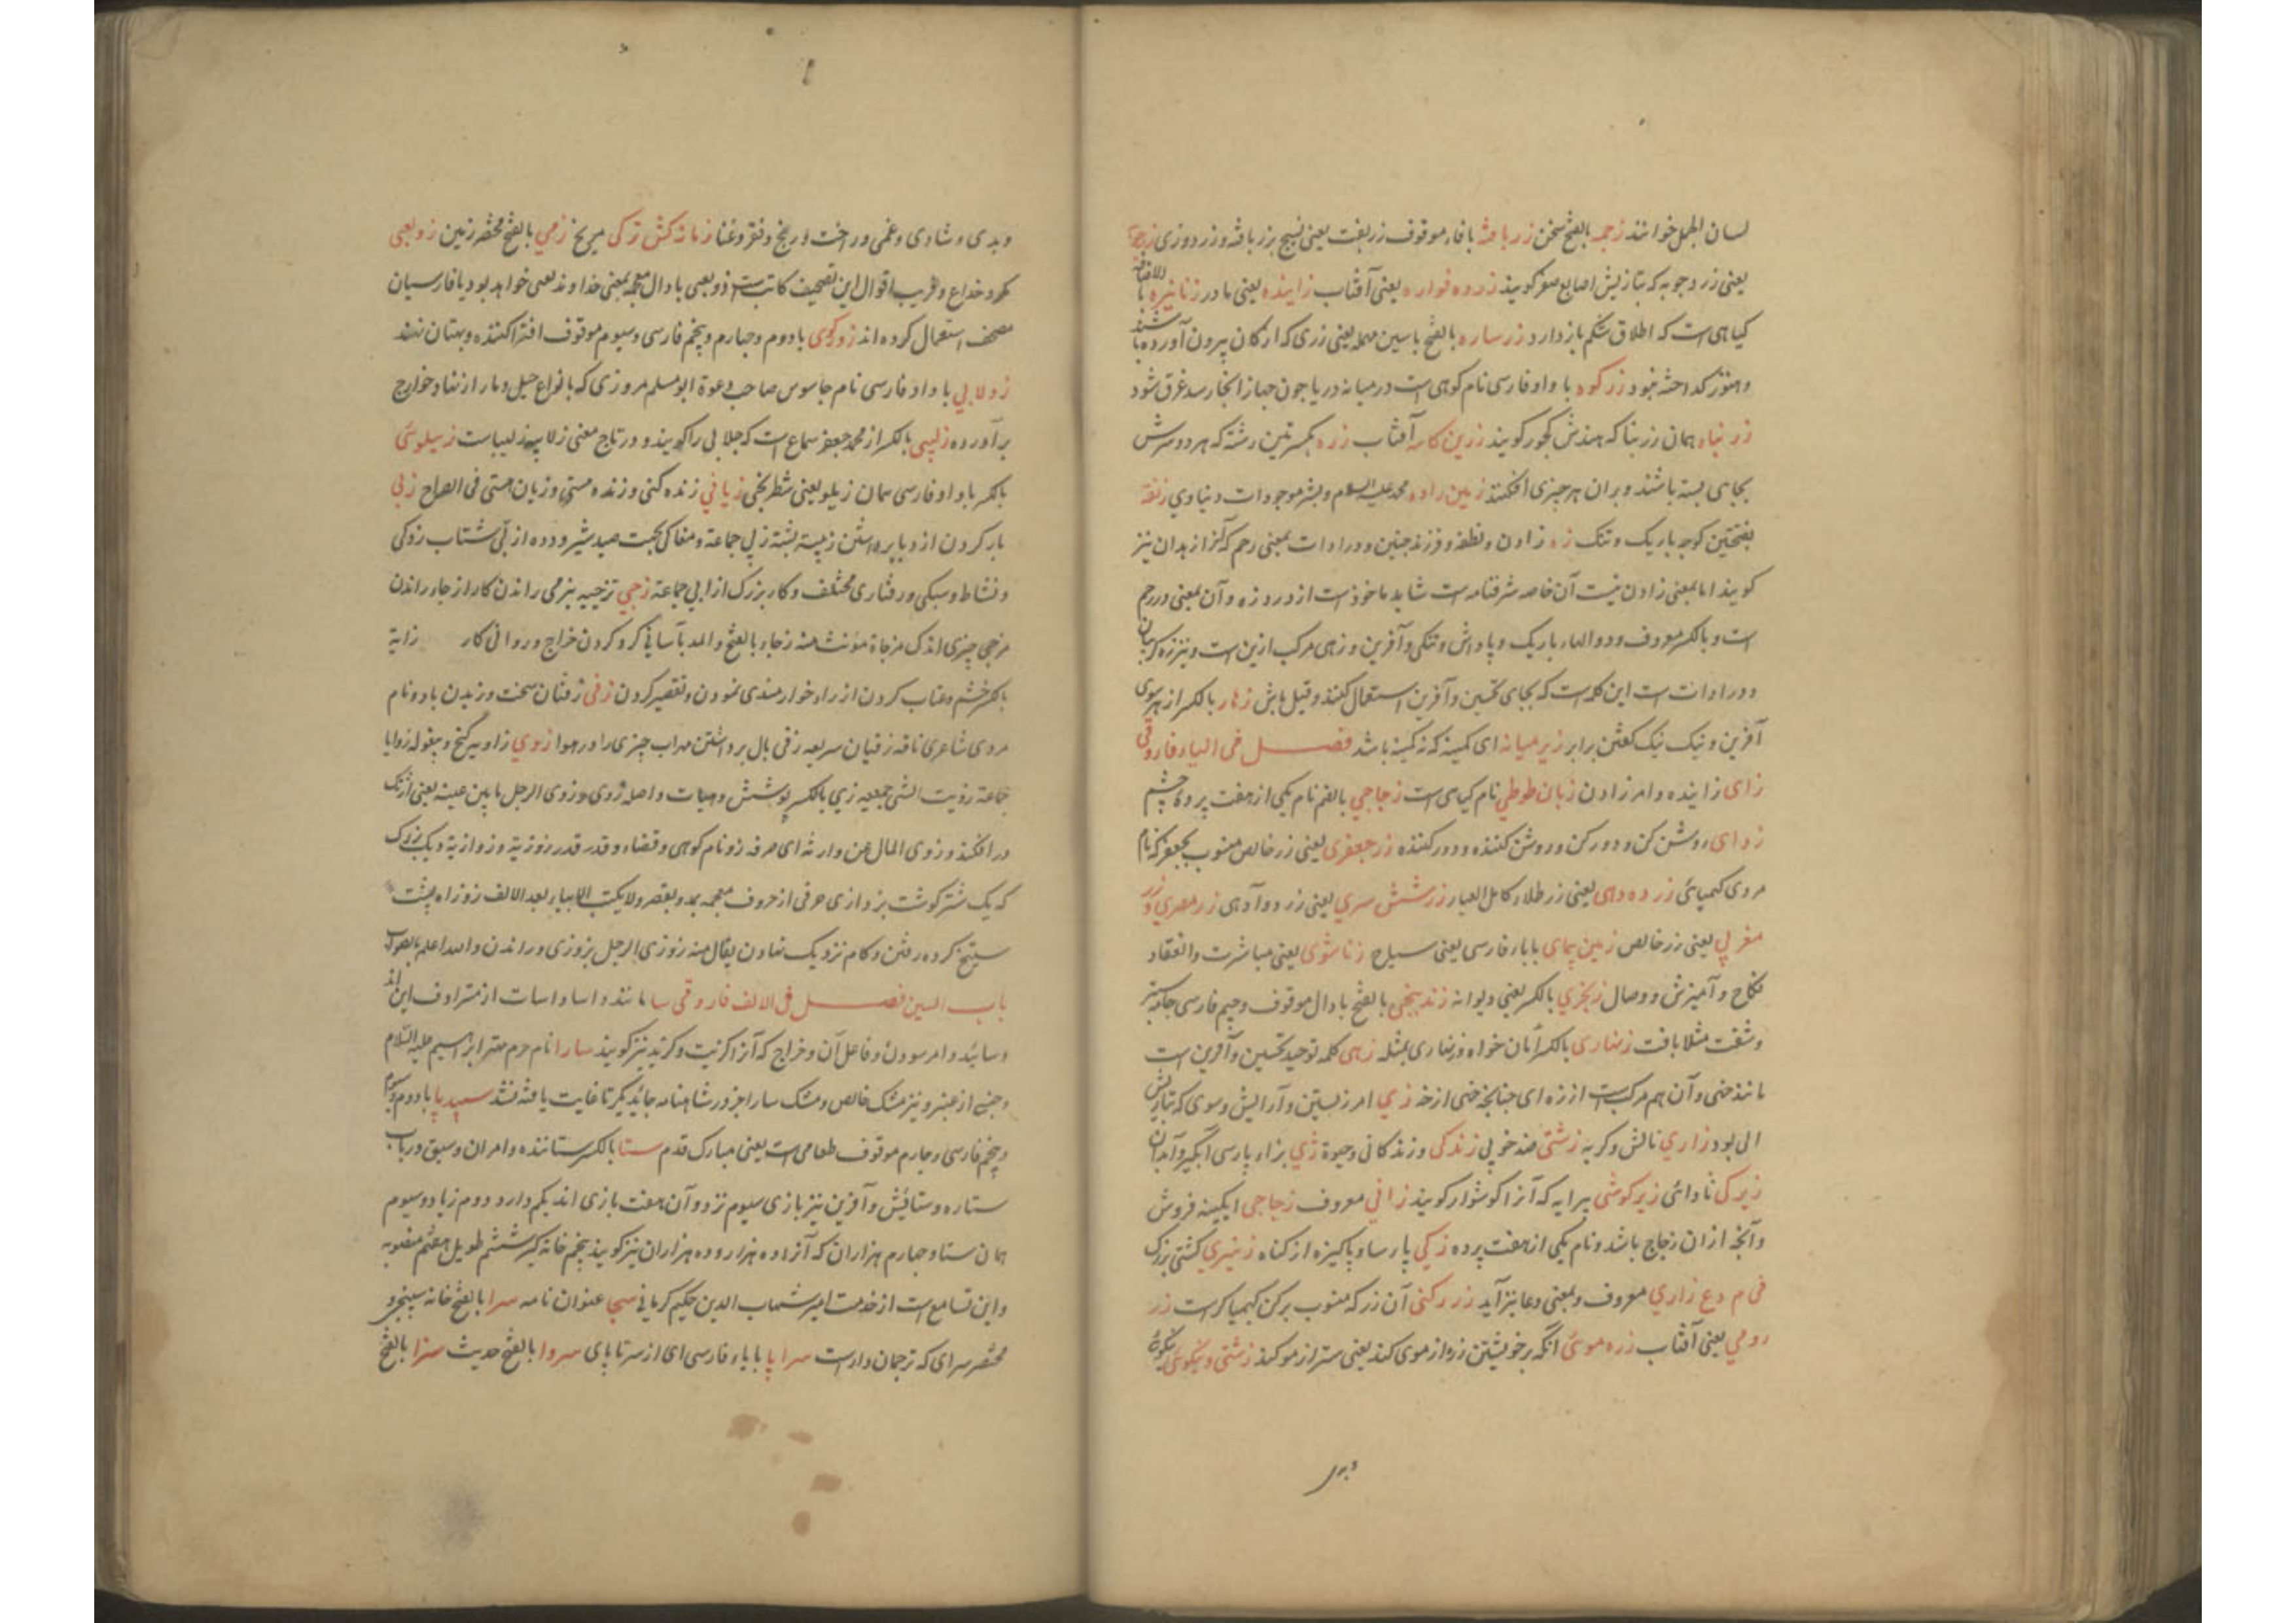 لسان الحمل خوانند زجمه بالفتح سخن زربافته بافاء موقوف زربفت یعنی نسیج بزر بافته و زردوزی
یعنی زر وجوبه که بتازیش اصابع صفر گویند زرده نواره یعنی آفتاب زاینده یعنی مادر
کیاهی است که اطلاق شکم باز دارد زرساره بالفتح باسین مهمله یعنی زری که از کان بیرون آورده باشند
وهنوز گداخته نبود زرکوه با واو فارسی نام کوهی است در میانه دریا چون جهاز آنجا رسد غرق شود
زرنباه همان زرنبا که هندش کچور گویند زرین کاسه آفتاب زره بکسرتین رشته که هر دو سرش
بجای بسته باشند و بران هر چیزی افکنند زمین زاده محمد علیه السلام و بشر موجودات دنیاوی زنقه
بفتحتین کوچه باریک و تنک زه زادن و نطفه و فرزند جنین و در ادات بمعنی رحم که از بدان نیز
گویند اما بمعنی زادن نیست آن خاصه شرفنامه است شاید ماخوذ است از درد زه و آن بمعنی درد رحم
است و بالکسر معروف و دوالهاء باریک و پاداش و تنکی و آفرین و زهی مرکب ازین است و نیز زه کریبان
و در ادات است این کلمه است که بجای تحسین و آفرین استعمال کنند و قیل هاش زهار بالکسر از هر سوی
آفرین و نیک نیک گفتن برابر زیر میانه ای کمینه که نه کمینه باشد فصل فی الیاء فاروقی
زای زاینده و امر زادن زبان طوطی نام کیاهی است زجاجی بالضم نام یکی از هفت پرده چشم
زدای روشن کن و دور کن و روشن کننده و دور کننده زر جعفری یعنی زر خالص منسوب بجعفر که نام
مردی کیمیائی زر ده دهی یعنی زر طلاء کامل العیار زر شش سری یعنی زر دوآدهی زر مصری و زر
مغربی یعنی زر خالص زمین پیمای بابار فارسی یعنی سیاح زناشوی یعنی مباشرت و انعقاد
نکاح و آمیزش و وصال زنجری بالکسر یعنی دیوانه زندپیچی بالفتح بادال موقوف و جیم فارسی جامه سبز
زنهاری بالکسر امان خواه و زنهاری بمثله زهی کلمه توحید تحسین و آفرین است
مانند خهی و آن هم مرکب است از زه ای چنانچه خهی از خه زی امر زیستن و آرایش و سوی که بتازیش
الی بود زاری نالش و کریه زشتی ضد خوبی زندکی و زندکانی و حیوة ژی بزاء پارسی آبگیر و آبدان
زیرکی دانائی زیرکوشی پیرایه که آنرا کوشوار گویند زانی معروف زجاجی آبکینه فروش
و آنچه از ان زجاج باشد و نام یکی از هفت پرده زکی پارسا و پاکیزه از کناه زنبری کشتی بزرک
ف م دع زاری معروف و بمعنی دعا نیز آید زر رکنی آن زر که منسوب برکن کیمیاکر است زر
رومی یعنی آفتاب زره موی آنکه بر خویشتن زره از موی کند یعنی ستر از مو کند زشتی و نیکوی
وبدی
وبدی و شادی و غمی و راحت و رنج و فقر و غنا زمانه کش ترکی مریخ زمی بالفتح مختصر زمین زوبعی
مکر و خداع و فریب اقوال این تصحیف کاتبست ذوبعی با دال معجمه بمعنی خداوند بعی خواهد بود یا فارسیان
مصحف استعمال کرده اند زوکوی بادوم و چهارم و پنجم فارسی و سیوم موقوف افترا کننده و بهتان نهند
زولابی با واو فارسی نام جاسوس صاحب دعوة ابو مسلم مروزی که بانواع حیل دمار از نهاد خوارج
برآورده زلیبی بالکسر از محمد جعفر سماع است که جلابی را گویند و در تاج معنی زلابیه زلیبیاست زیلوئی
بالکسر با واو فارسی همان زیلو یعنی شطرنجی زیانی زنده کنی و زنده هستی و زیان هستی فی الصراح زبی
بار کردن از دبابر داشتن زبیه پشته زبی جماعة و مغاکی بجهت صید شیر و دده از بی شتاب زدکی
و نشاط و سبکی و رفتاری مختلف و کار بزرک ازابی جماعة زجی تزجیه بنرمی راندن کار از جاء راندن
مزجی چیزی اندک مزجاة مونث منه زجاء بالفتح والمد بآسانی کرد کردن خراج و روائی کار زایة
بالکسر خشم و عتاب کردن ازراء خوارمندی نمودن و تقصیر کردن زفی زفیان سخت وزیدن باد و نام
مردی شاعری ناقه زفیان سریعه زفی بال برداشتن سراب چیزی را در هوا زوی زاویه کنج و بیغوله زوایا
جماعة زویت الشی جمعیه زی بالکسر پوشش و هیات و اصله زوی و زوی الرجل مابین عینیه یعنی آژنک
درافکند و زوی المال عن وارثه ای صرفه زو نام کوهی و قضاء و قدر قدر زوزیة و زوازیة دیک بزرک
که یک شتر کوشت بزد ازی حرفی از حروف معجمه یمد و یقصر ولا یکتب الا بیاء بعد الالف زوزاه پشت
سیتخ کرده رفتن و کام نزدیک نهادن یقال منه زوزی الرجل یزوزی و راندن والله اعلم بالصواب
باب السین فصل فی الالف فاروقی سا مانند و اسا و اسات از مترادف این اند
و سائیده و امر سودن و فاعل آن و خراج که آنرا کزیت و کزید نیز گویند سارا نام حرم مهتر ابراهیم علیه السلام
و جنسی از عنبر و نیز مشک خالص و مشک سارا جز در شاهنامه جائی دیکر تا غایت یافته نشد سپیدپا بادوم و سیوم
و پنجم فارسی و چهارم موقوف طعامی است یعنی مبارک قدم ستا بالکسر ستاننده و امر ان و سبق در باب
ستاره و ستایش و آفرین نیز بازی سیوم نرد و آن هفت بازی اند یکم دارد دوم زیاد و سیوم
همان ستا و چهارم هزاران که آنرا ده هزار و ده هزاران نیز گویند پنجم خانه کیر ششم طویل هفتم منصوبه
و این تسامع است از خدمت امیر شهاب الدین حکیم کرمانی سجا عنوان نامه سرا بالفتح خانه سپنجی و
مختصر سرای که ترجمان دار است سراپا بابا فارسی ای از سر تا پای سروا بالفتح حدیث سزا بالفتح